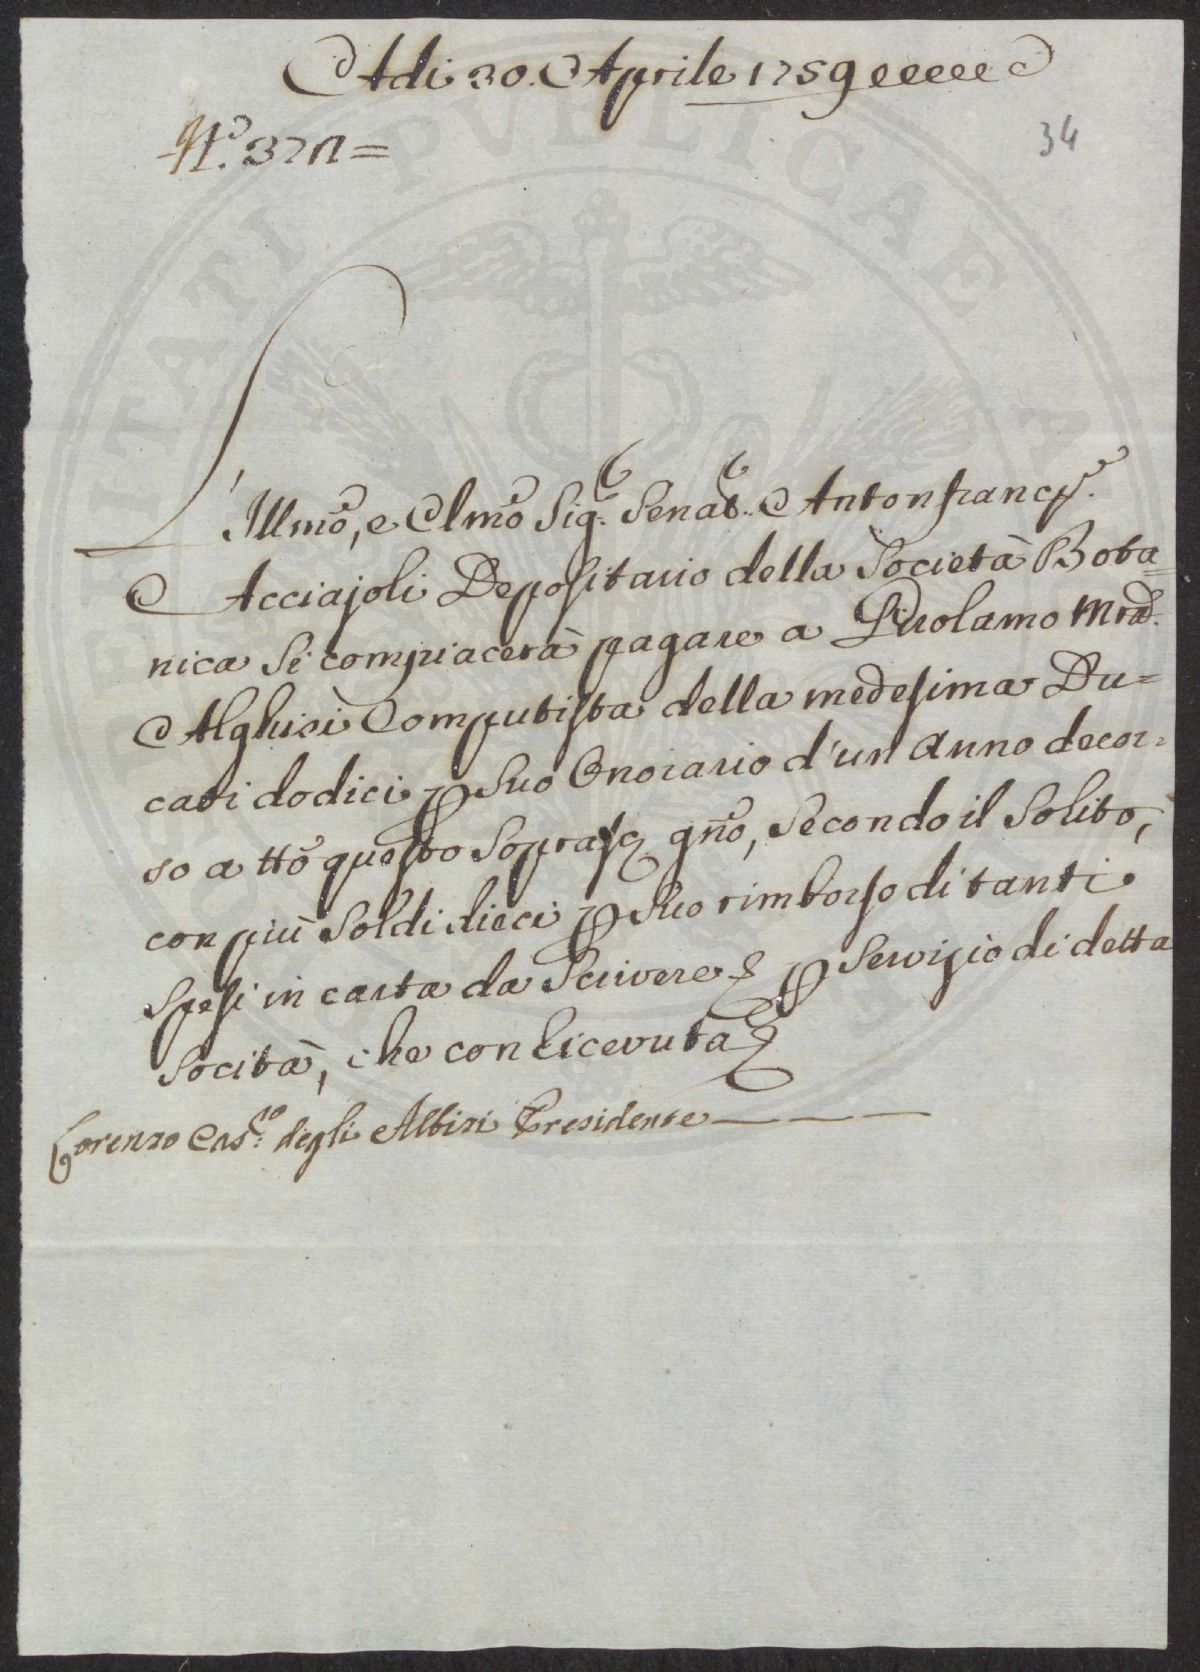 Adi 30. Aprile 1759
34
L'Illmo, e Clmo Sig.r Senat.e Antonfranc.o
Acciajoli Depositario della Società Bota=
nica Si compiacerà pagare a Girolamo Mrā.
Alghisi Computista della medesima Du=
cati dodici p Suo Onorario d'un anno decor=
so a tto questo soprasc. gno, Secondo il Solito,
con più Soldi dieci p Suo rimborso di tanti
Spesi in carta da Scrivere p Servizio di detta
Socità, che con Ricevuta
Lorenzo Cas.o degli Albizi Presidente
PVBLICAE